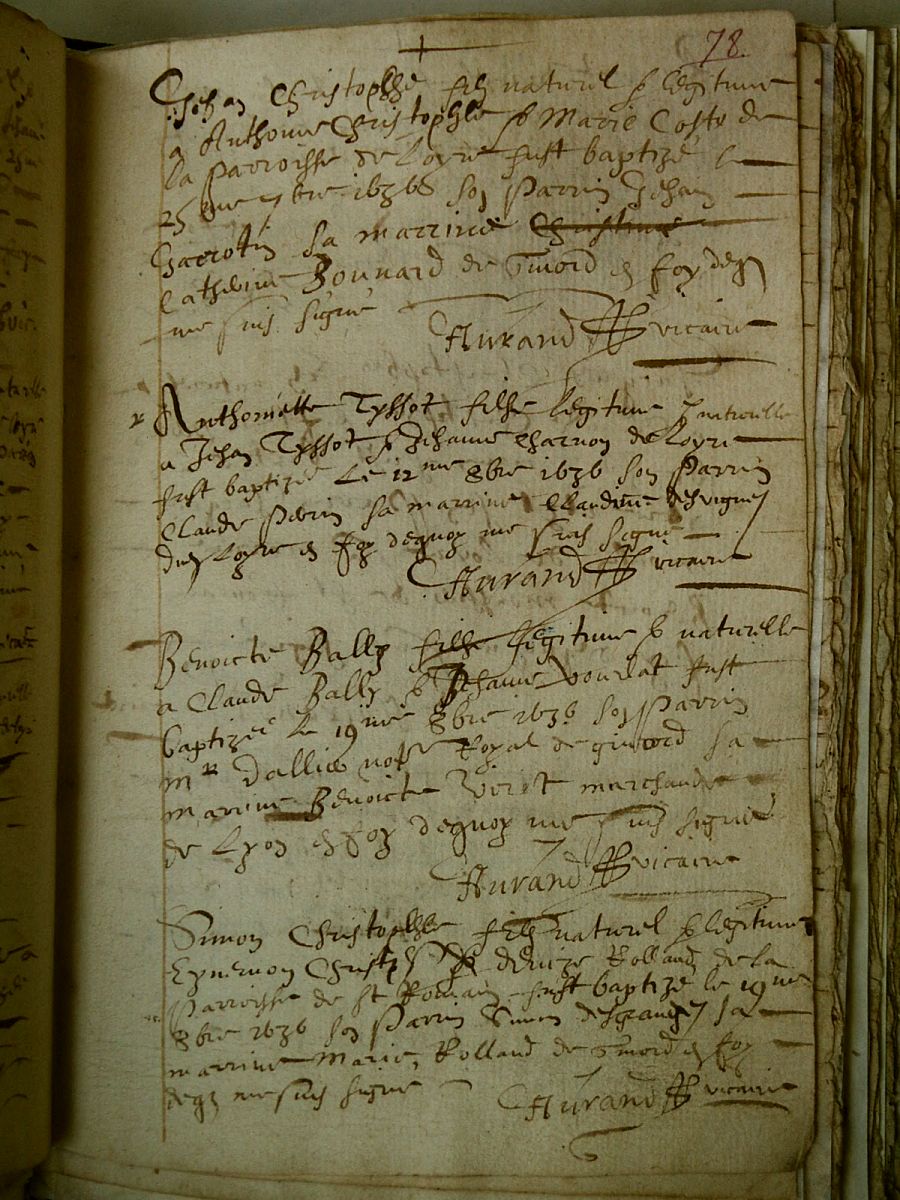 78.
Jehan Christophle filz naturel & legitime
a Anthoine Christophle & Marie Coste de
la parroisse de Loyre fust baptizé le
25 me 7bre 1636 son parrin Jehan
sa marrine Christine
Catherine Bonnard de en foy deq
me suis signé
Aurand vicaire
Anthoniette Tyssot filhe legitime & naturelle
a Jehan Tyssot & Jehanne Charnon de Loyre
fust baptizée le 12 me 8bre 1636 son parrin
Claude Perin sa marrine Claudine desvignes
dud Loyre en foy dequoy me suis signé
Aurand vicaire
Benoicte Bally filhe legitime & naturelle
a Claude Bally & Jehanne vourlat fust
baptizée le 19 me 8bre 1636 son parrin
mr Dallier Royal de sa
marrine Benoicte marchande
de Lyon en foy dequoy me suis signé
Aurand vicaire
Simon Christophle filz naturel & legitime
Christ & denize Rolland de la
parroisse de st Romain fust baptizé le 19 me
8bre 1636 son parrin Simon desgranges sa
marrine Marie Rolland de en foy
deq me suis signé
Aurand vicaire